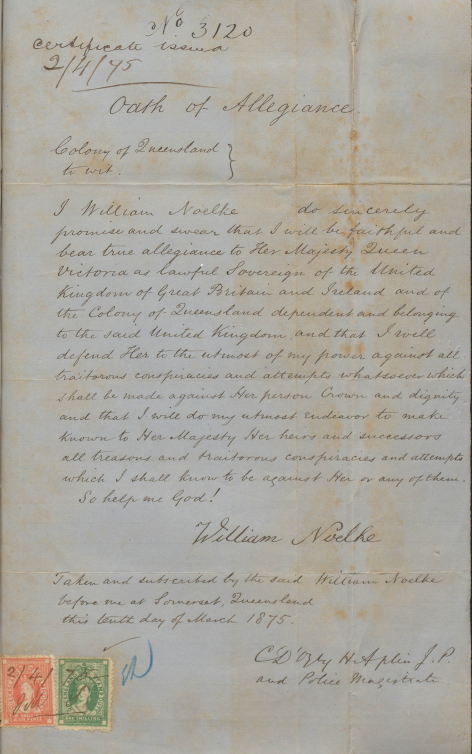 No 3120
certificate issued
2/4/75
Oath of Allegiance
Colony of Queensland
to wit.
I William Noelke do sincerely
promise and swear that I will be faithful and
bear true allegiance to Her Majesty Queen
Victoria as lawful Sovereign of the United
Kingdom of Great Britain and Ireland and of
the Colony of Queensland dependent and belonging
to the said United Kingdom and that I will
defend Her to the utmost of my power against all
traitorous conspiracies and attempts whatsoever which
shall be made against Her person Crown and dignity
and that I will do my utmost endeavor to make
known to Her Majesty Her heirs and successors
all treasons and traitorous conspiracies and attempts
which I shall know to be against Her or any of them.
So help me God!
William Noelke
Taken and subscribed by the said William Noelke
before me at Somerset, Queensland
this tenth day of March 1875.
C D'Oyly H Aplin J.P.
and Police Magistrate
2/4/75
ONE SHILLING